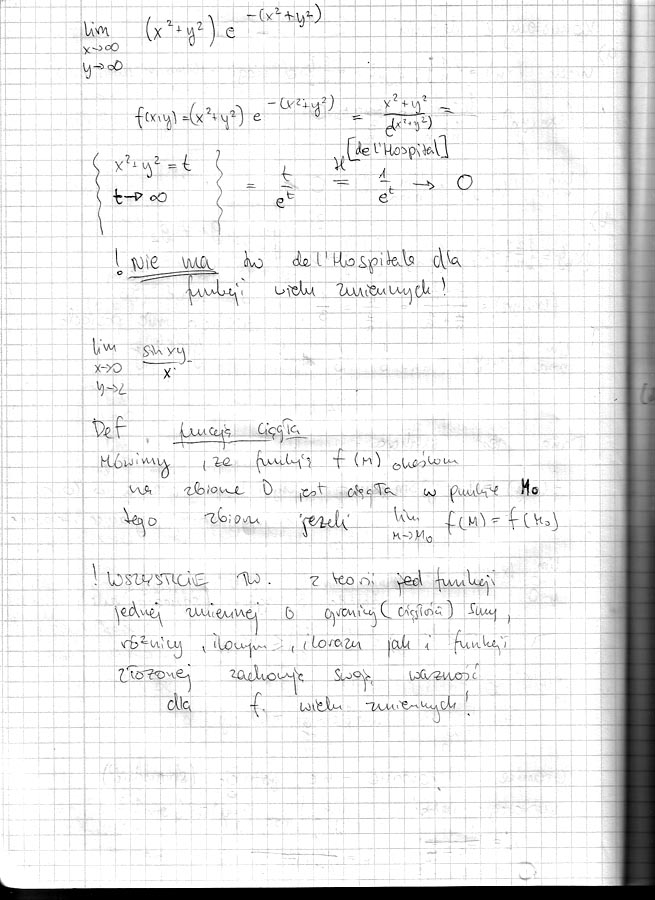 lim (x²+y²) e^-(x²+y²)
x→∞
y→∞
f(x,y)=(x²+y²) e^-(x²+y²) = x²+y² / e^(x²+y²) =
{ x²+y²=t
t→∞ } = t/e^t =^H [de l'Hospital] 1/e^t → 0
! Nie ma tw de l'Hospitala dla
funkcji wielu zmiennych!
lim sin xy / x
x→0
y→2
Def. funkcja ciągła
Mówimy, że funkcja f(M) określona
na zbiorze D jest ciągła w punkcie M₀
tego zbioru jeżeli lim f(M) = f(M₀)
M→M₀
! WSZYSTKIE TW. z teorii jed funkcji
jednej zmiennej o granicy (ciągłości) sumy,
różnicy, iloczynu, ilorazu jak i funkcji
złożonej zachowują swoją ważność
dla f. wielu zmiennych!